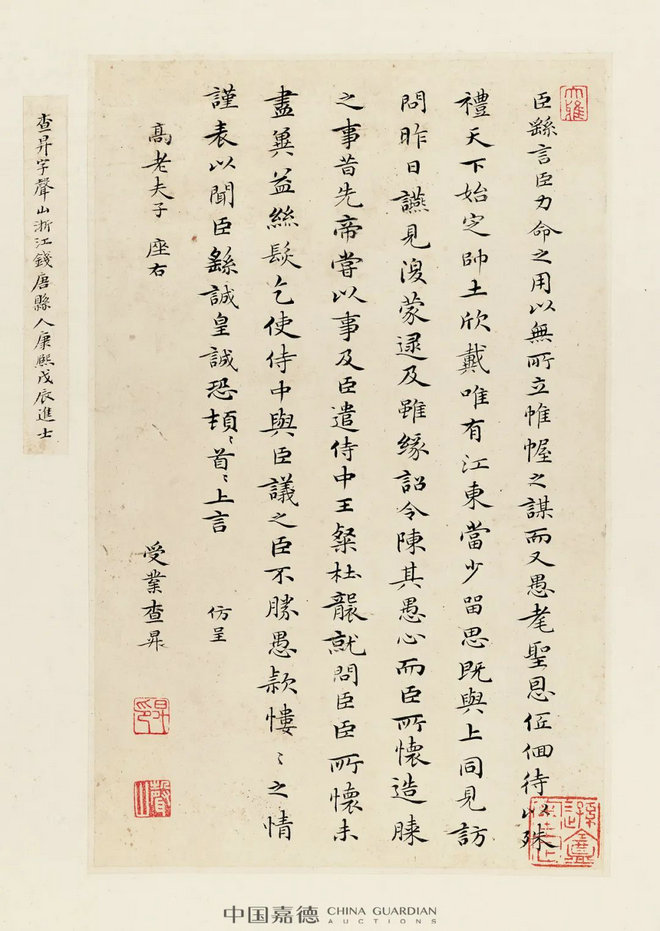 大雅
臣繇言臣力命之用以無所立帷幄之謀而又愚耄聖恩低佪待以殊
禮天下始定帥土欣戴唯有江東當少留思既與上同見訪
問昨日讌見復蒙逮及雖緣詔令陳其愚心而臣所懷造膝
之事昔先帝嘗以事及臣遣侍中王粲杜襲就問臣臣所懷未
盡冀益絲髮乞使侍中與臣議之臣不勝愚款慺〻之情
謹表以聞臣繇誠皇誠恐頓〻首〻上言 仿呈
高老夫子 座右
受業查昇
昇印
聲山
查昇字聲山浙江錢唐縣人康熙戊辰進士
中国嘉德 CHINA GUARDIAN AUCTIONS